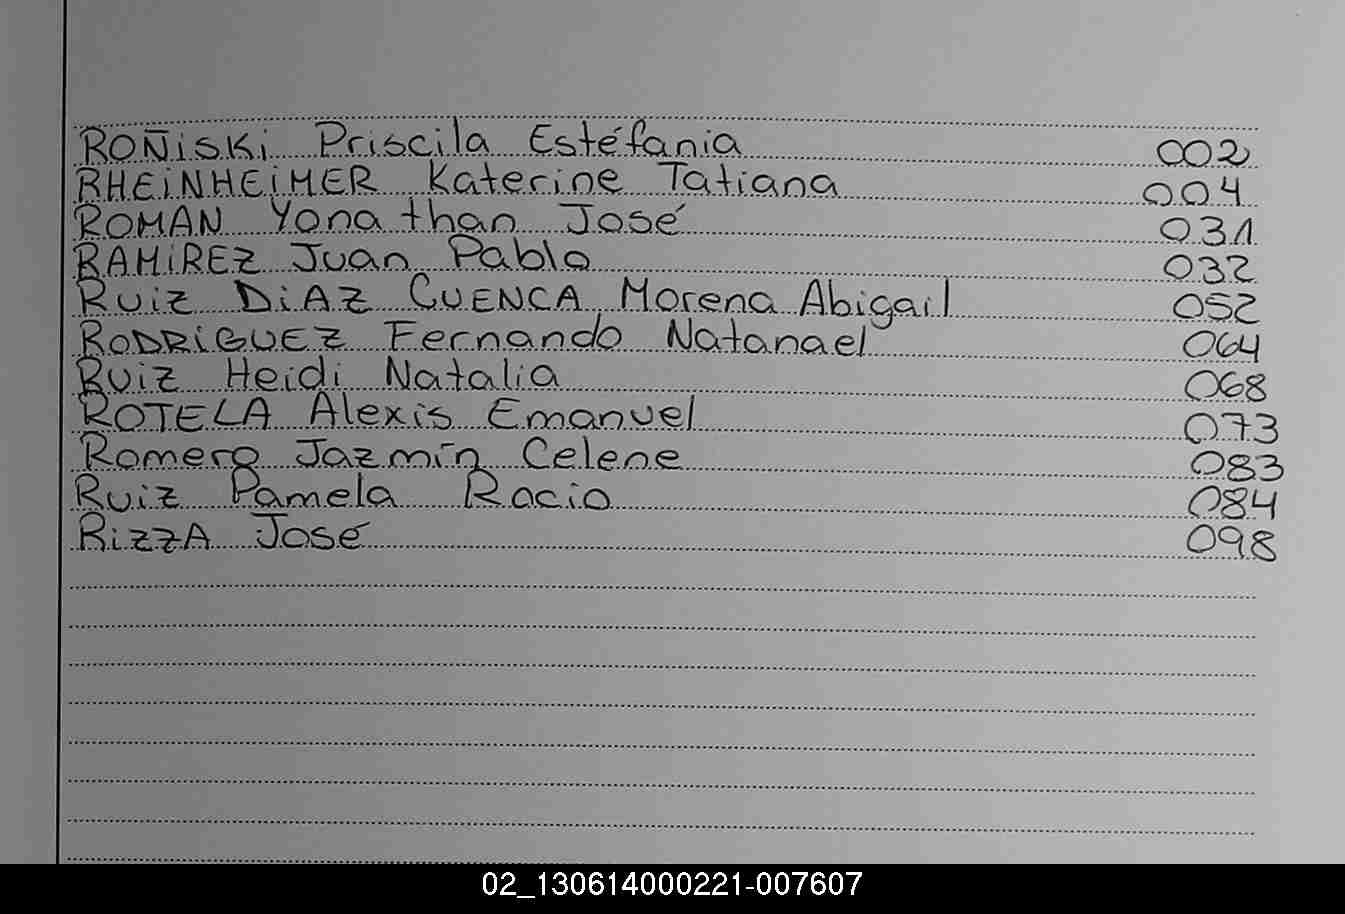 ROÑiSKi Priscila Estéfania 002
RHEiNHEiMER Katerine Tatiana 004
ROMAN Yonathan José 031
RAMiREZ Juan Pablo 032
RUiZ DiAZ CUENCA Morena Abigail 052
RODRiGUEZ Fernando Natanael 064
Ruiz Heidi Natalia 068
ROTELA Alexis Emanuel 073
Romero Jazmín Celene 083
Ruiz Pamela Rocio 084
RizzA José 098
02_130614000221-007607